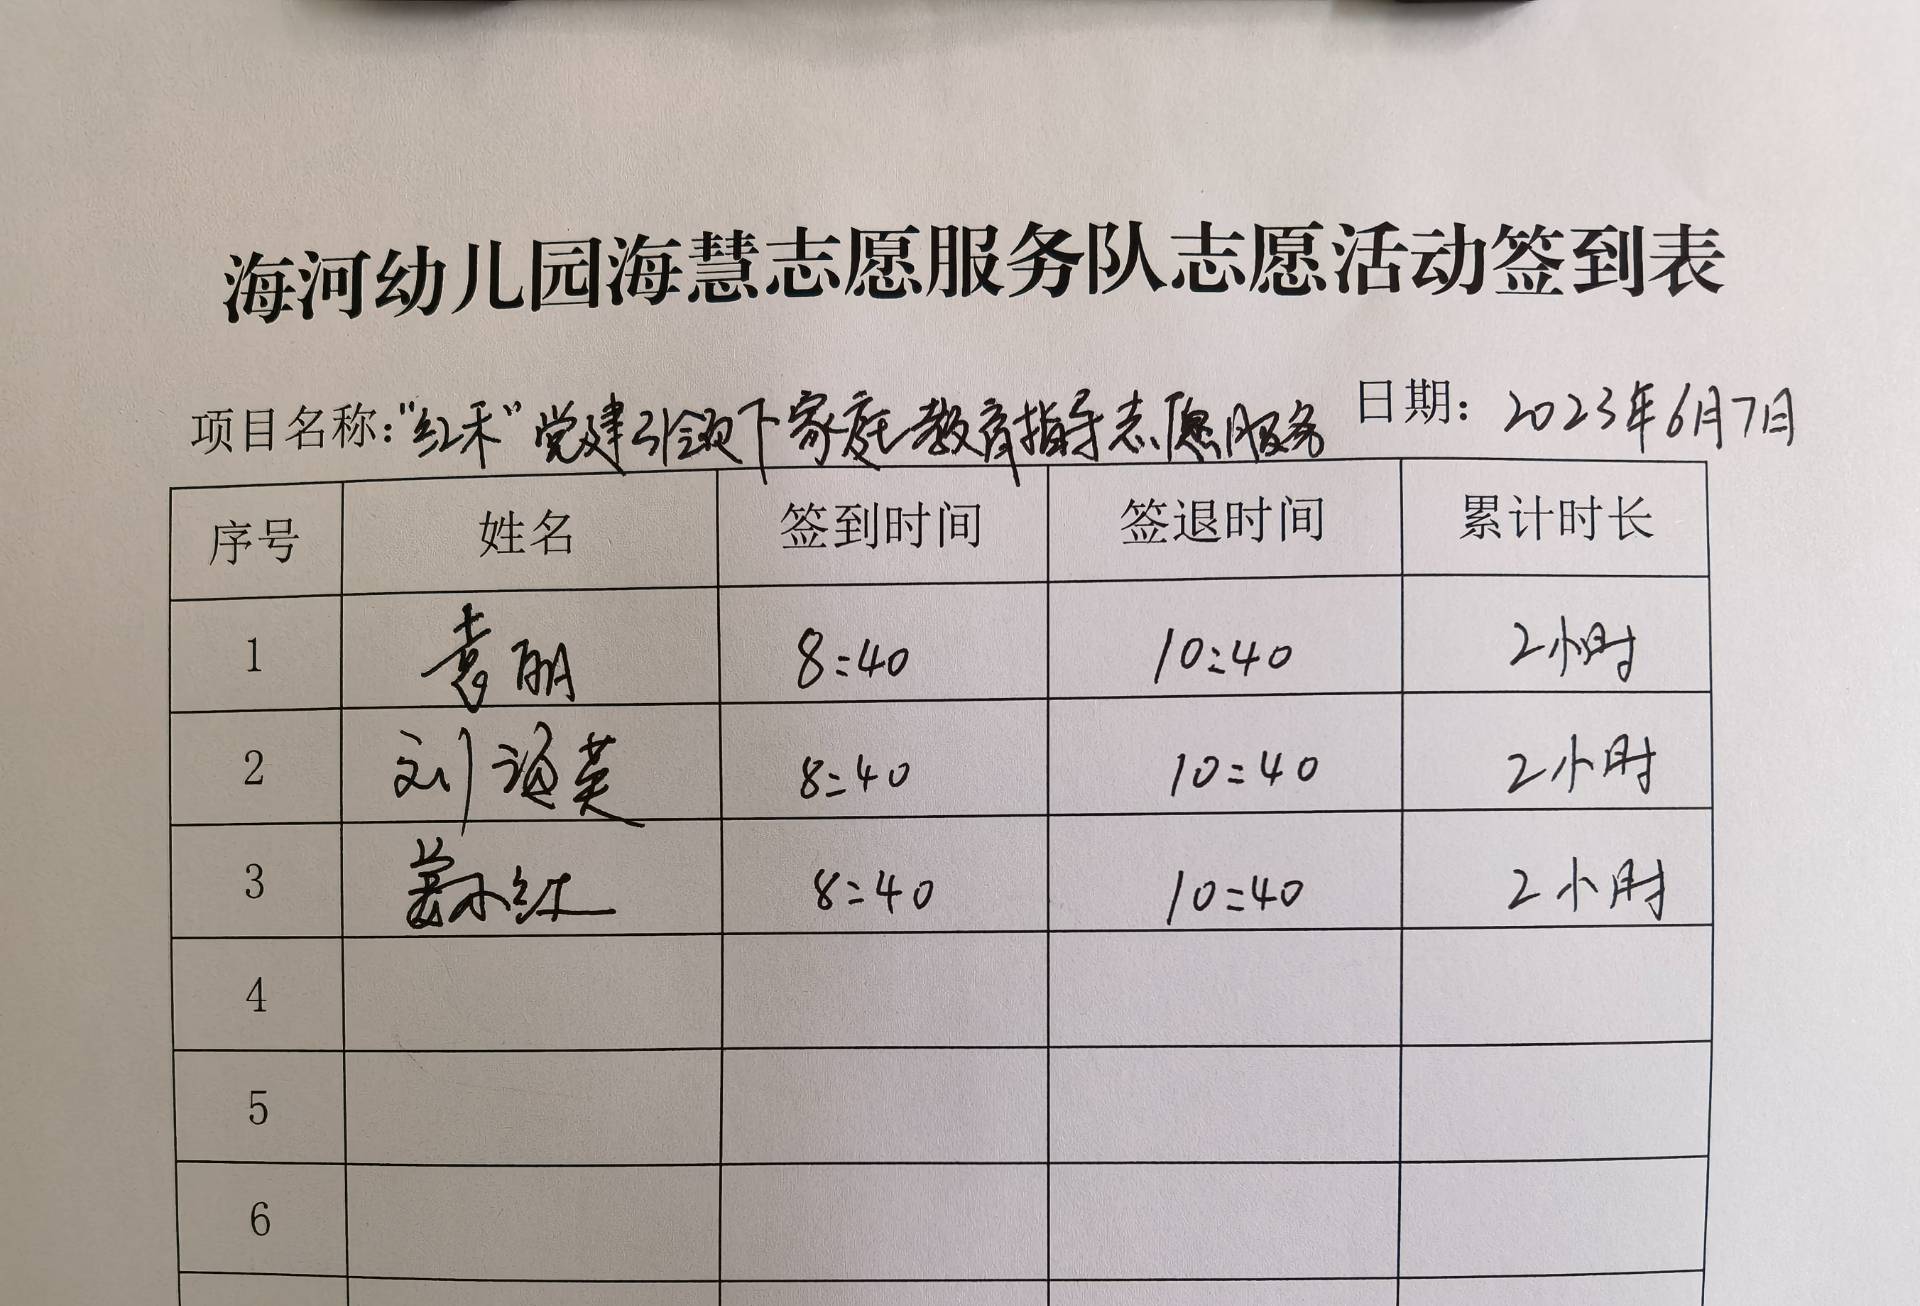 海河幼儿园海慧志愿服务队志愿活动签到表
项目名称:“红禾”党建引领下家庭教育指导志愿服务 日期: 2023年6月7日
序号 姓名 签到时间 签退时间 累计时长
1 袁丽 8:40 10:40 2小时
2 刘海英 8:40 10:40 2小时
3 8:40 10:40 2小时
4
5
6